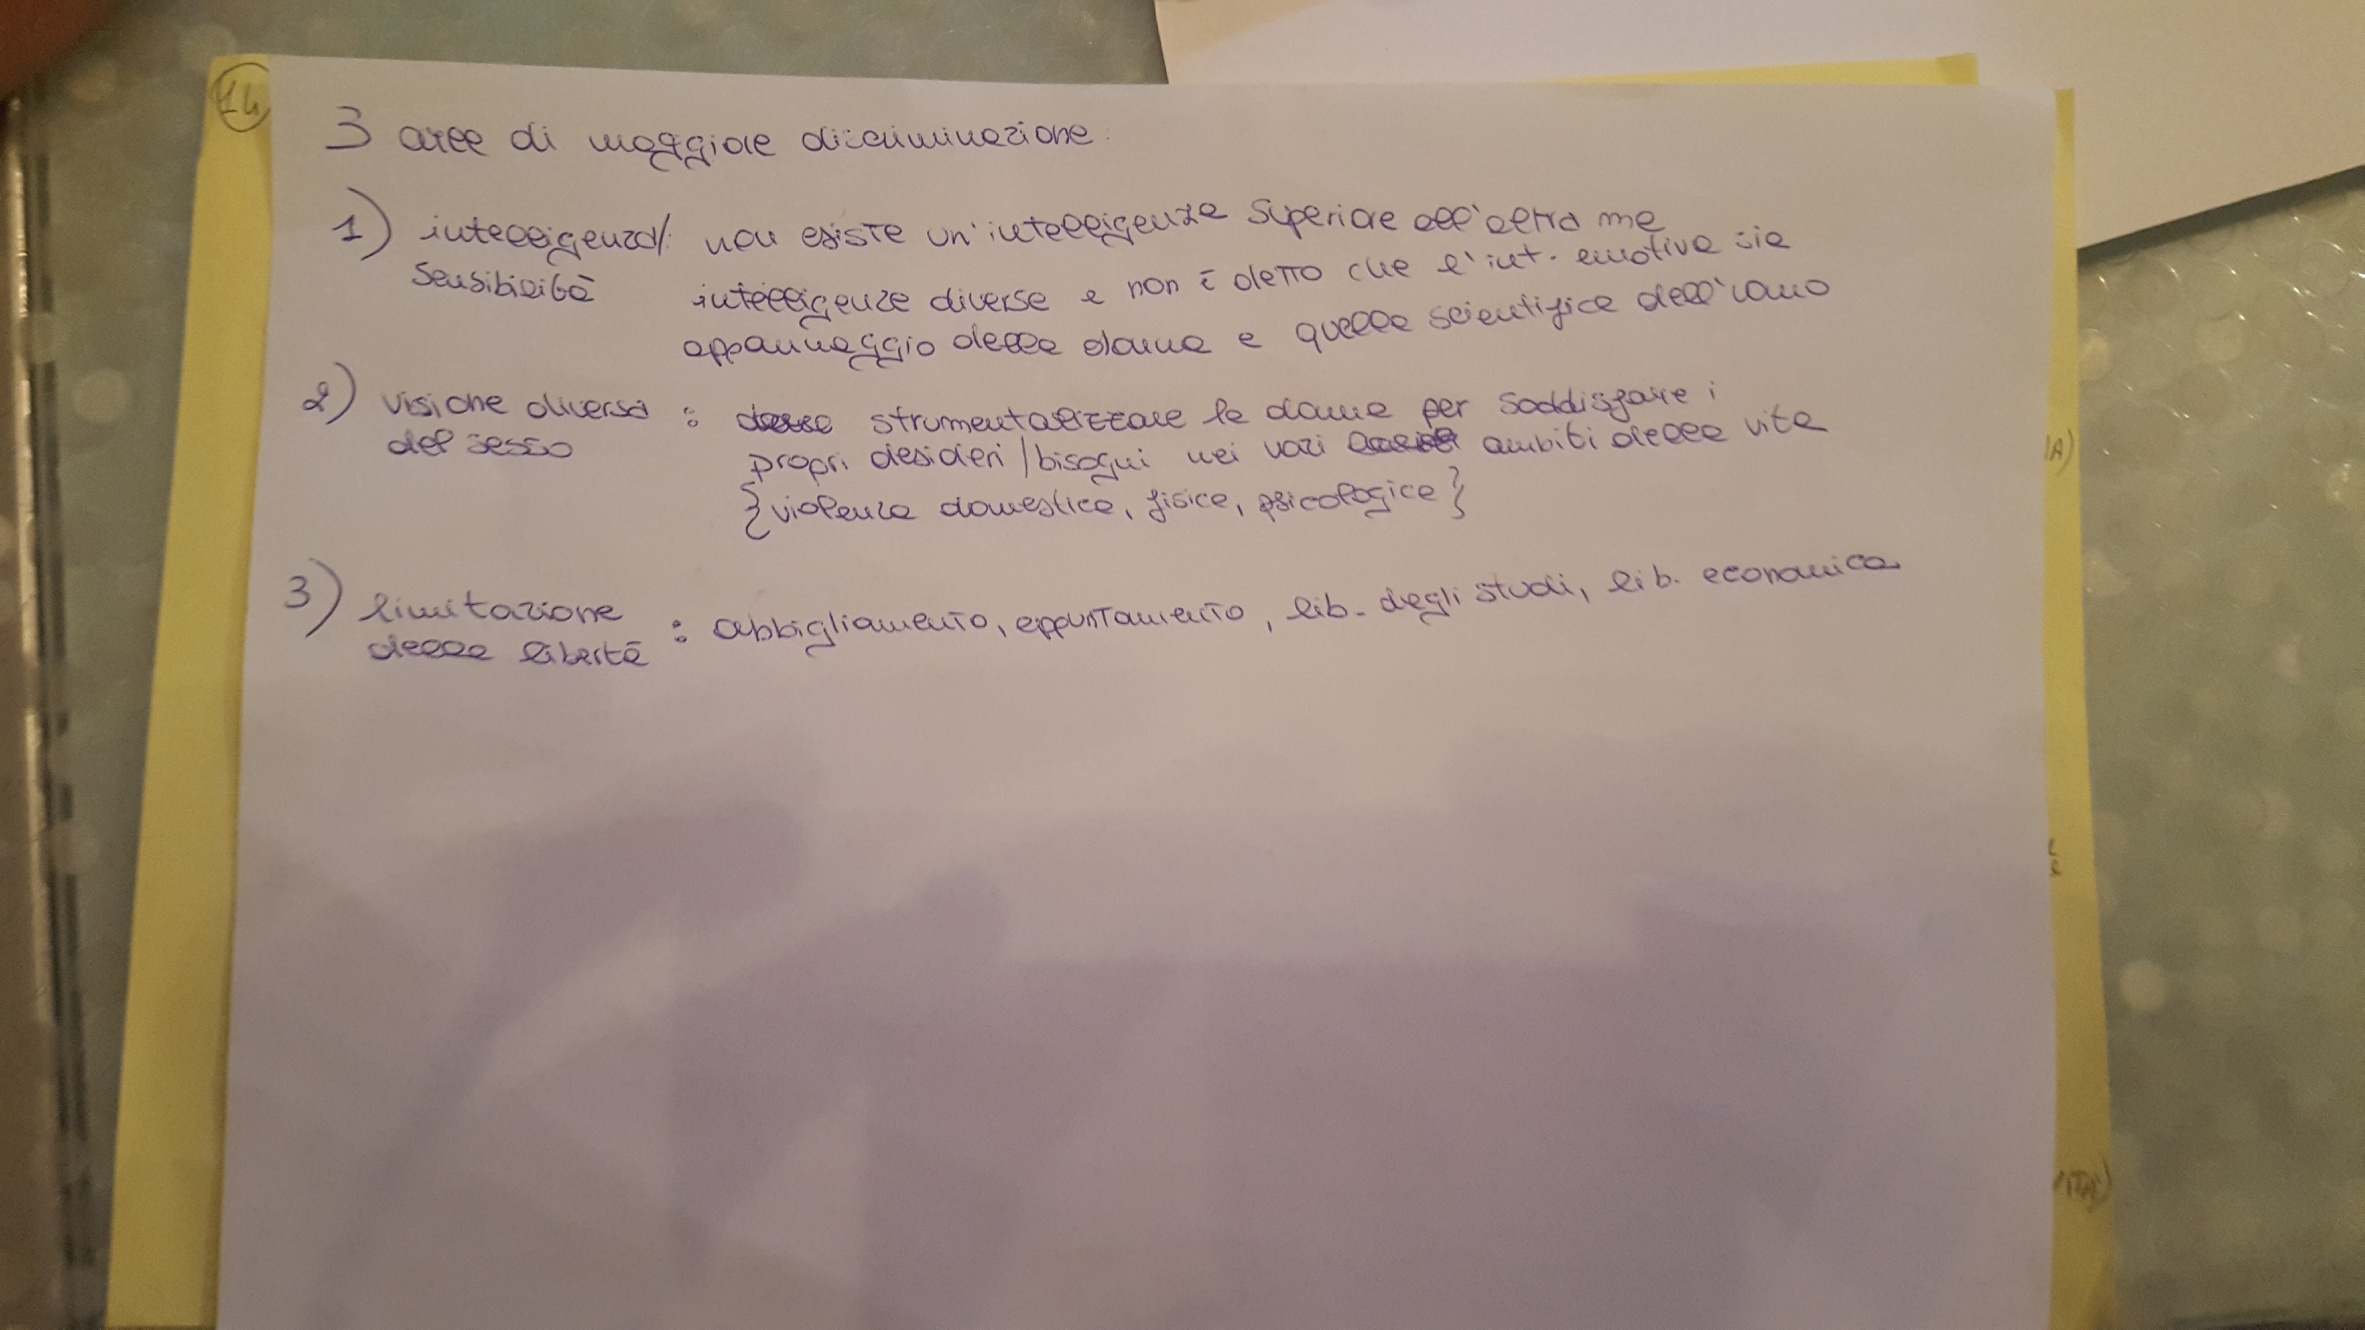 14
3 aree di maggiore discriminazione:
1) intelligenza/: non esiste un'intelligenza superiore all'altra ma
sensibilità intelligenze diverse e non è detto che l'int. emotiva sia
appannaggio della donna e quella scientifica dell'uomo
2) visione diversa : strumentalizzare la donna per soddisfare i
del sesso propri desideri/bisogni nei vari ambiti della vita
{violenza domestica, fisica, psicologica}
3) limitazione : abbigliamento, appuntamento, lib. degli studi, lib. economica
della libertà